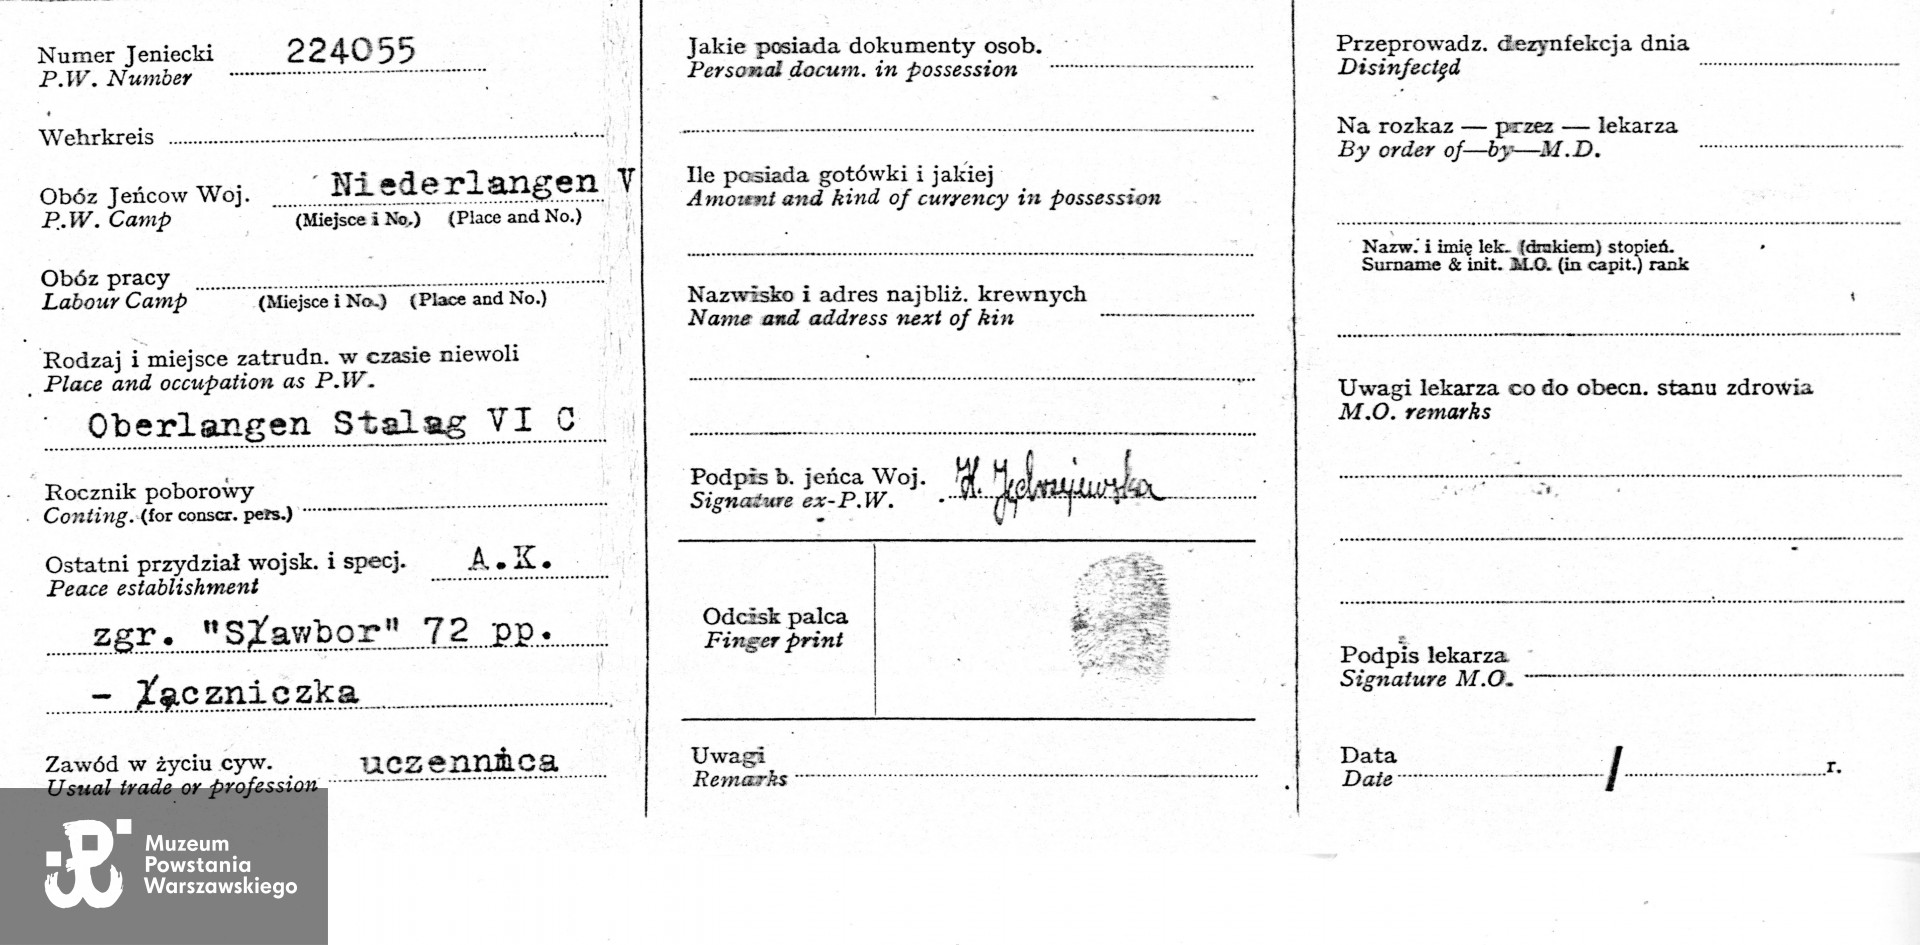 Numer Jeniecki 224055
P.W. Number
Wehrkreis
Obóz Jeńcow Woj. Niederlangen V
P.W. Camp (Miejsce i No.) (Place and No.)
Obóz pracy
Labour Camp (Miejsce i No.) (Place and No.)
Rodzaj i miejsce zatrudn. w czasie niewoli
Place and occupation as P.W.
Oberlangen Stalag VI C
Rocznik poborowy
Conting. (for conscr. pers.)
Ostatni przydział wojsk. i specj. A.K.
Peace establishment
zgr. "Sławbor" 72 pp.
- łączniczka
Zawód w życiu cyw. uczennica
Usual trade or profession
Jakie posiada dokumenty osob.
Personal docum. in possession
Ile posiada gotówki i jakiej
Amount and kind of currency in possession
Nazwisko i adres najbliż. krewnych
Name and address next of kin
Podpis b. jeńca Woj. H. Jędrzejewska
Signature ex-P.W.
Odcisk palca
Finger print
Uwagi
Remarks
Przeprowadz. dezynfekcja dnia
Disinfected
Na rozkaz — przez — lekarza
By order of—by—M.D.
Nazw. i imię lek. (drukiem) stopień.
Surname & init. M.O. (in capit.) rank
Uwagi lekarza co do obecn. stanu zdrowia
M.O. remarks
Podpis lekarza
Signature M.O.
Data
Date / r.
Muzeum
Powstania
Warszawskiego